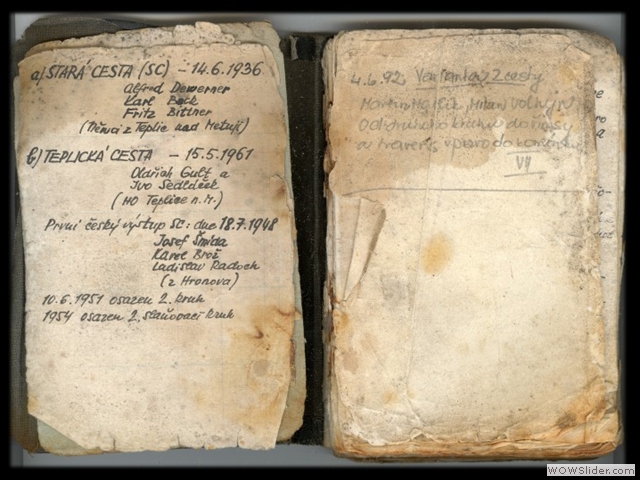 a) STARÁ CESTA (SC) – 14.6.1936
Alfred Dewerner
Karl Beck
Fritz Bittner
(Němci z Teplic nad Metují)
b) TEPLICKÁ CESTA – 15.5.1961
Oldřich Gult a
Ivo Sedláček
(HO Teplice n. M.)
První český výstup SC: dne 18.7.1948
Josef Šmída
Karel Brož
Ladislav Radoch
(z Hronova)
10.6.1951 osazen 2. kruh
1954 osazen 2. slaňovací kruh
4.6.92 Varianta 2 cesty
Milan Volný
Od druhého kruhu do
a travers vpravo do
VII
WOWSlider.com